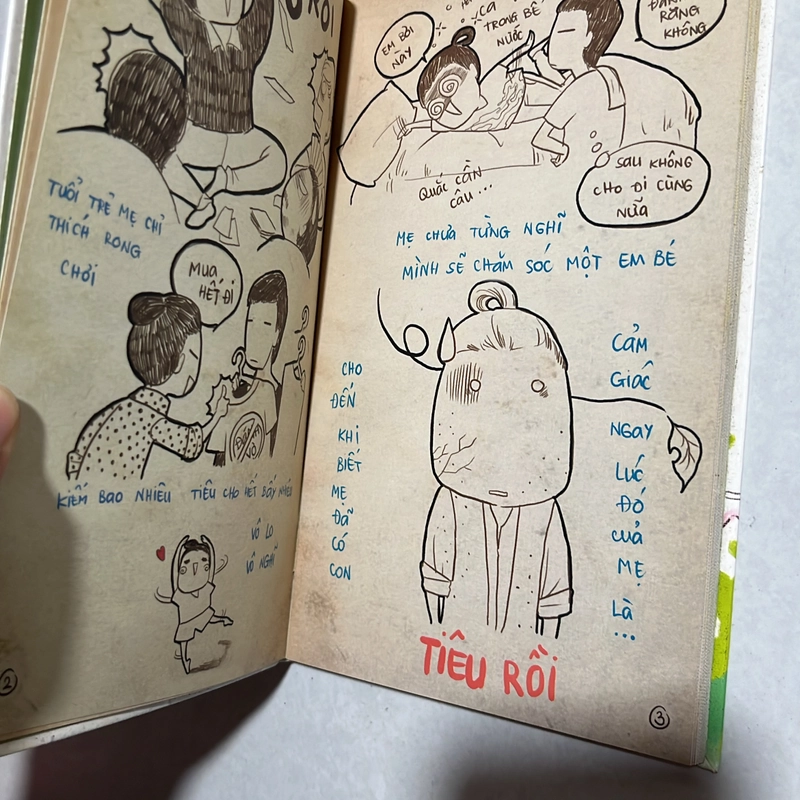 RỒI
TUỔI TRẺ MẸ CHỈ
THÍCH RONG
CHƠI
MUA
HẾT ĐI
KIẾM BAO NHIÊU TIÊU CHO HẾT BẤY NHIÊU
VÔ LO
VÔ NGHĨ
2
EM BƠI
NÀY
CÁ
TRONG BỂ
NƯỚC
ĐÁNH
RĂNG
KHÔNG
QUẮC CẦN
CÂU ...
SAU KHÔNG
CHO ĐI CÙNG
NỮA
MẸ CHƯA TỪNG NGHĨ
MÌNH SẼ CHĂM SÓC MỘT EM BÉ
CHO
ĐẾN
KHI
BIẾT
MẸ
ĐÃ
CÓ
CON
CẢM
GIÁC
NGAY
LÚC
ĐÓ
CỦA
MẸ
LÀ
...
TIÊU RỒI
3